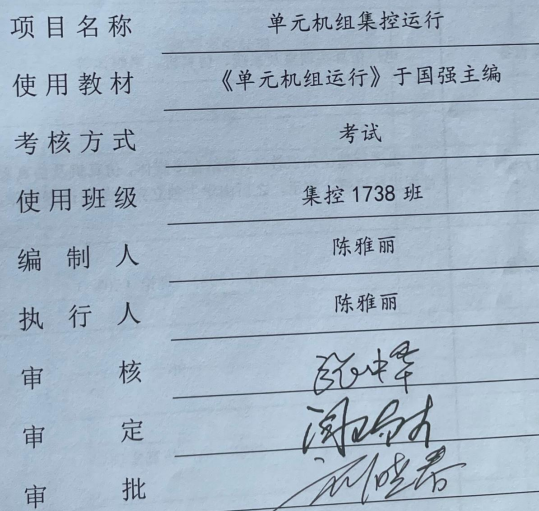 项目名称 单元机组集控运行
使用教材 《单元机组运行》于国强主编
考核方式 考试
使用班级 集控1738班
编制人 陈雅丽
执行人 陈雅丽
审核
审定
审批 刘晓春